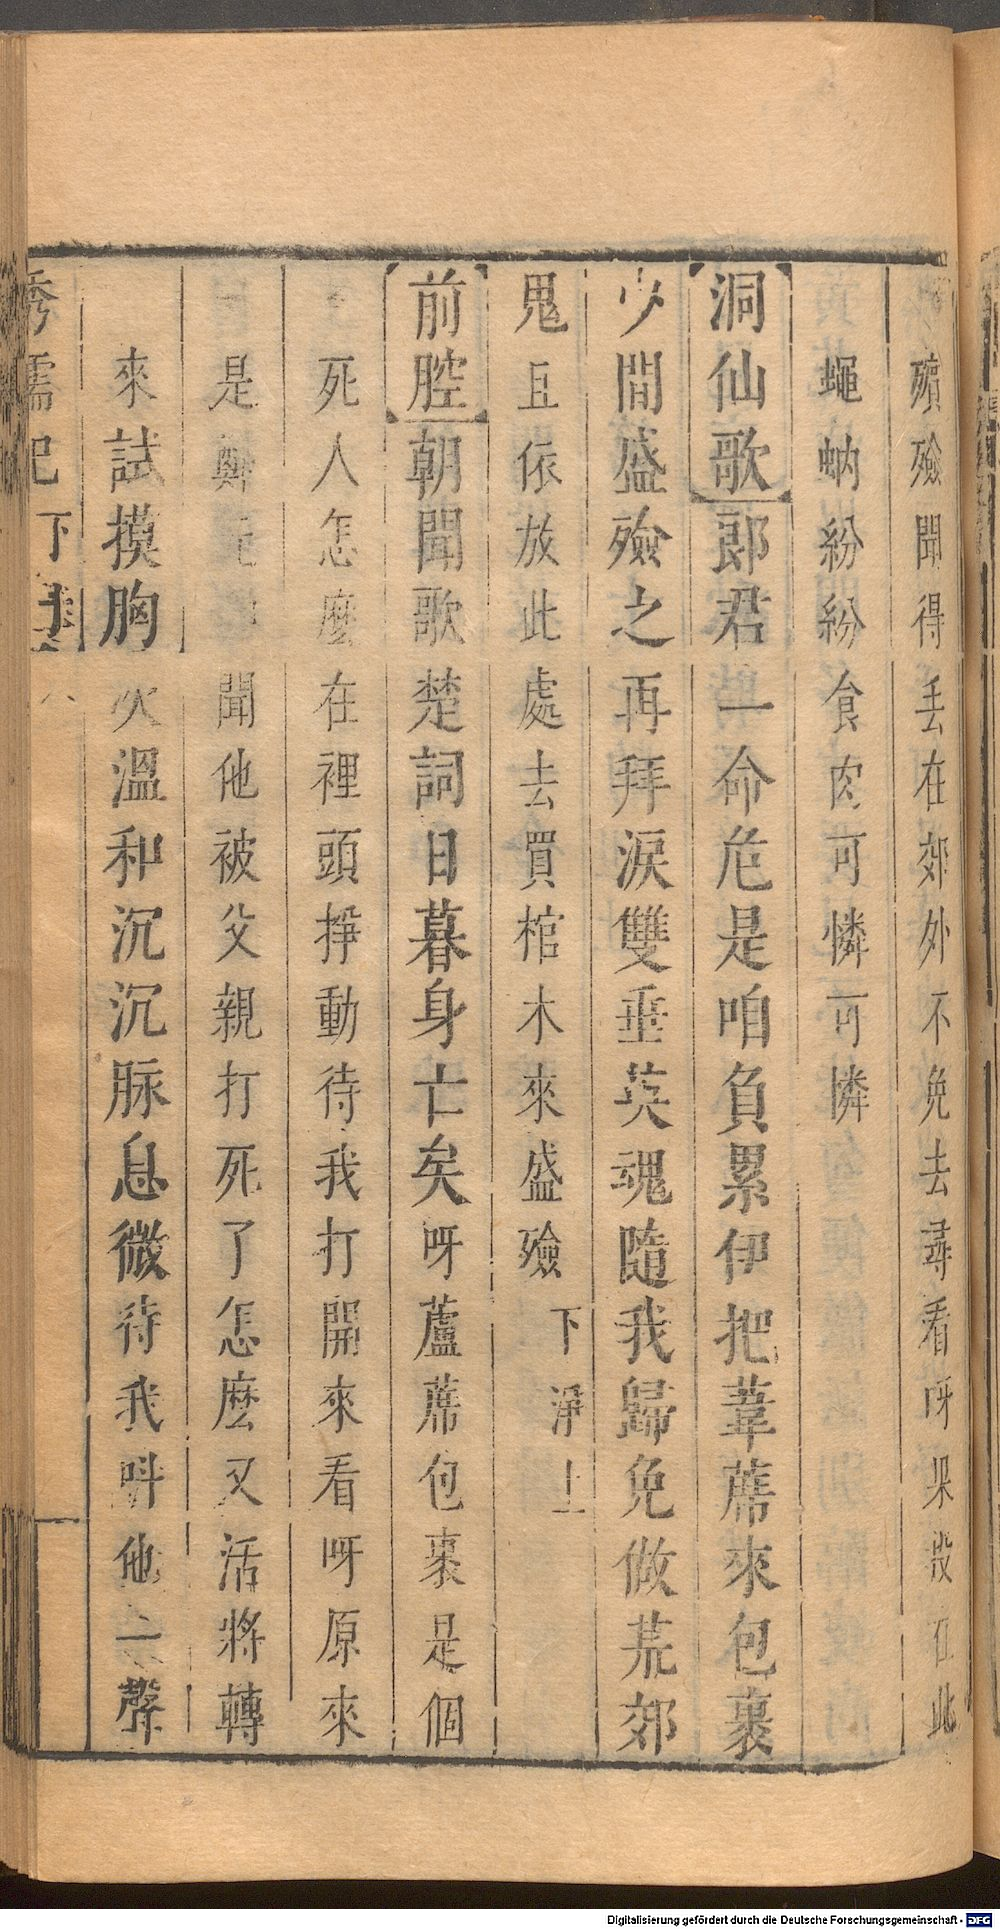 殯殮聞得丢在郊外不免去尋看呀果没在此
蠅蚋紛紛食肉可憐可憐
洞仙歌郎君一命危是咱負累伊把葦蓆來包裹
少間盛殮之再拜淚雙垂英魂隨我歸免做荒郊
鬼且依放此處去買棺木來盛殮下淨上
前腔朝聞歌楚詞日暮身亡矣呀蘆蓆包裹是個
死人怎麽在裡頭掙動待我打開來看呀原來
是鄭元和聞他被父親打死了怎麽又活將轉
來試摸胸火溫和沉沉脉息微待我呌他一聲
秀襦記 下卷
Digitalisierung gefördert durch die Deutsche Forschungsgemeinschaft - DFG